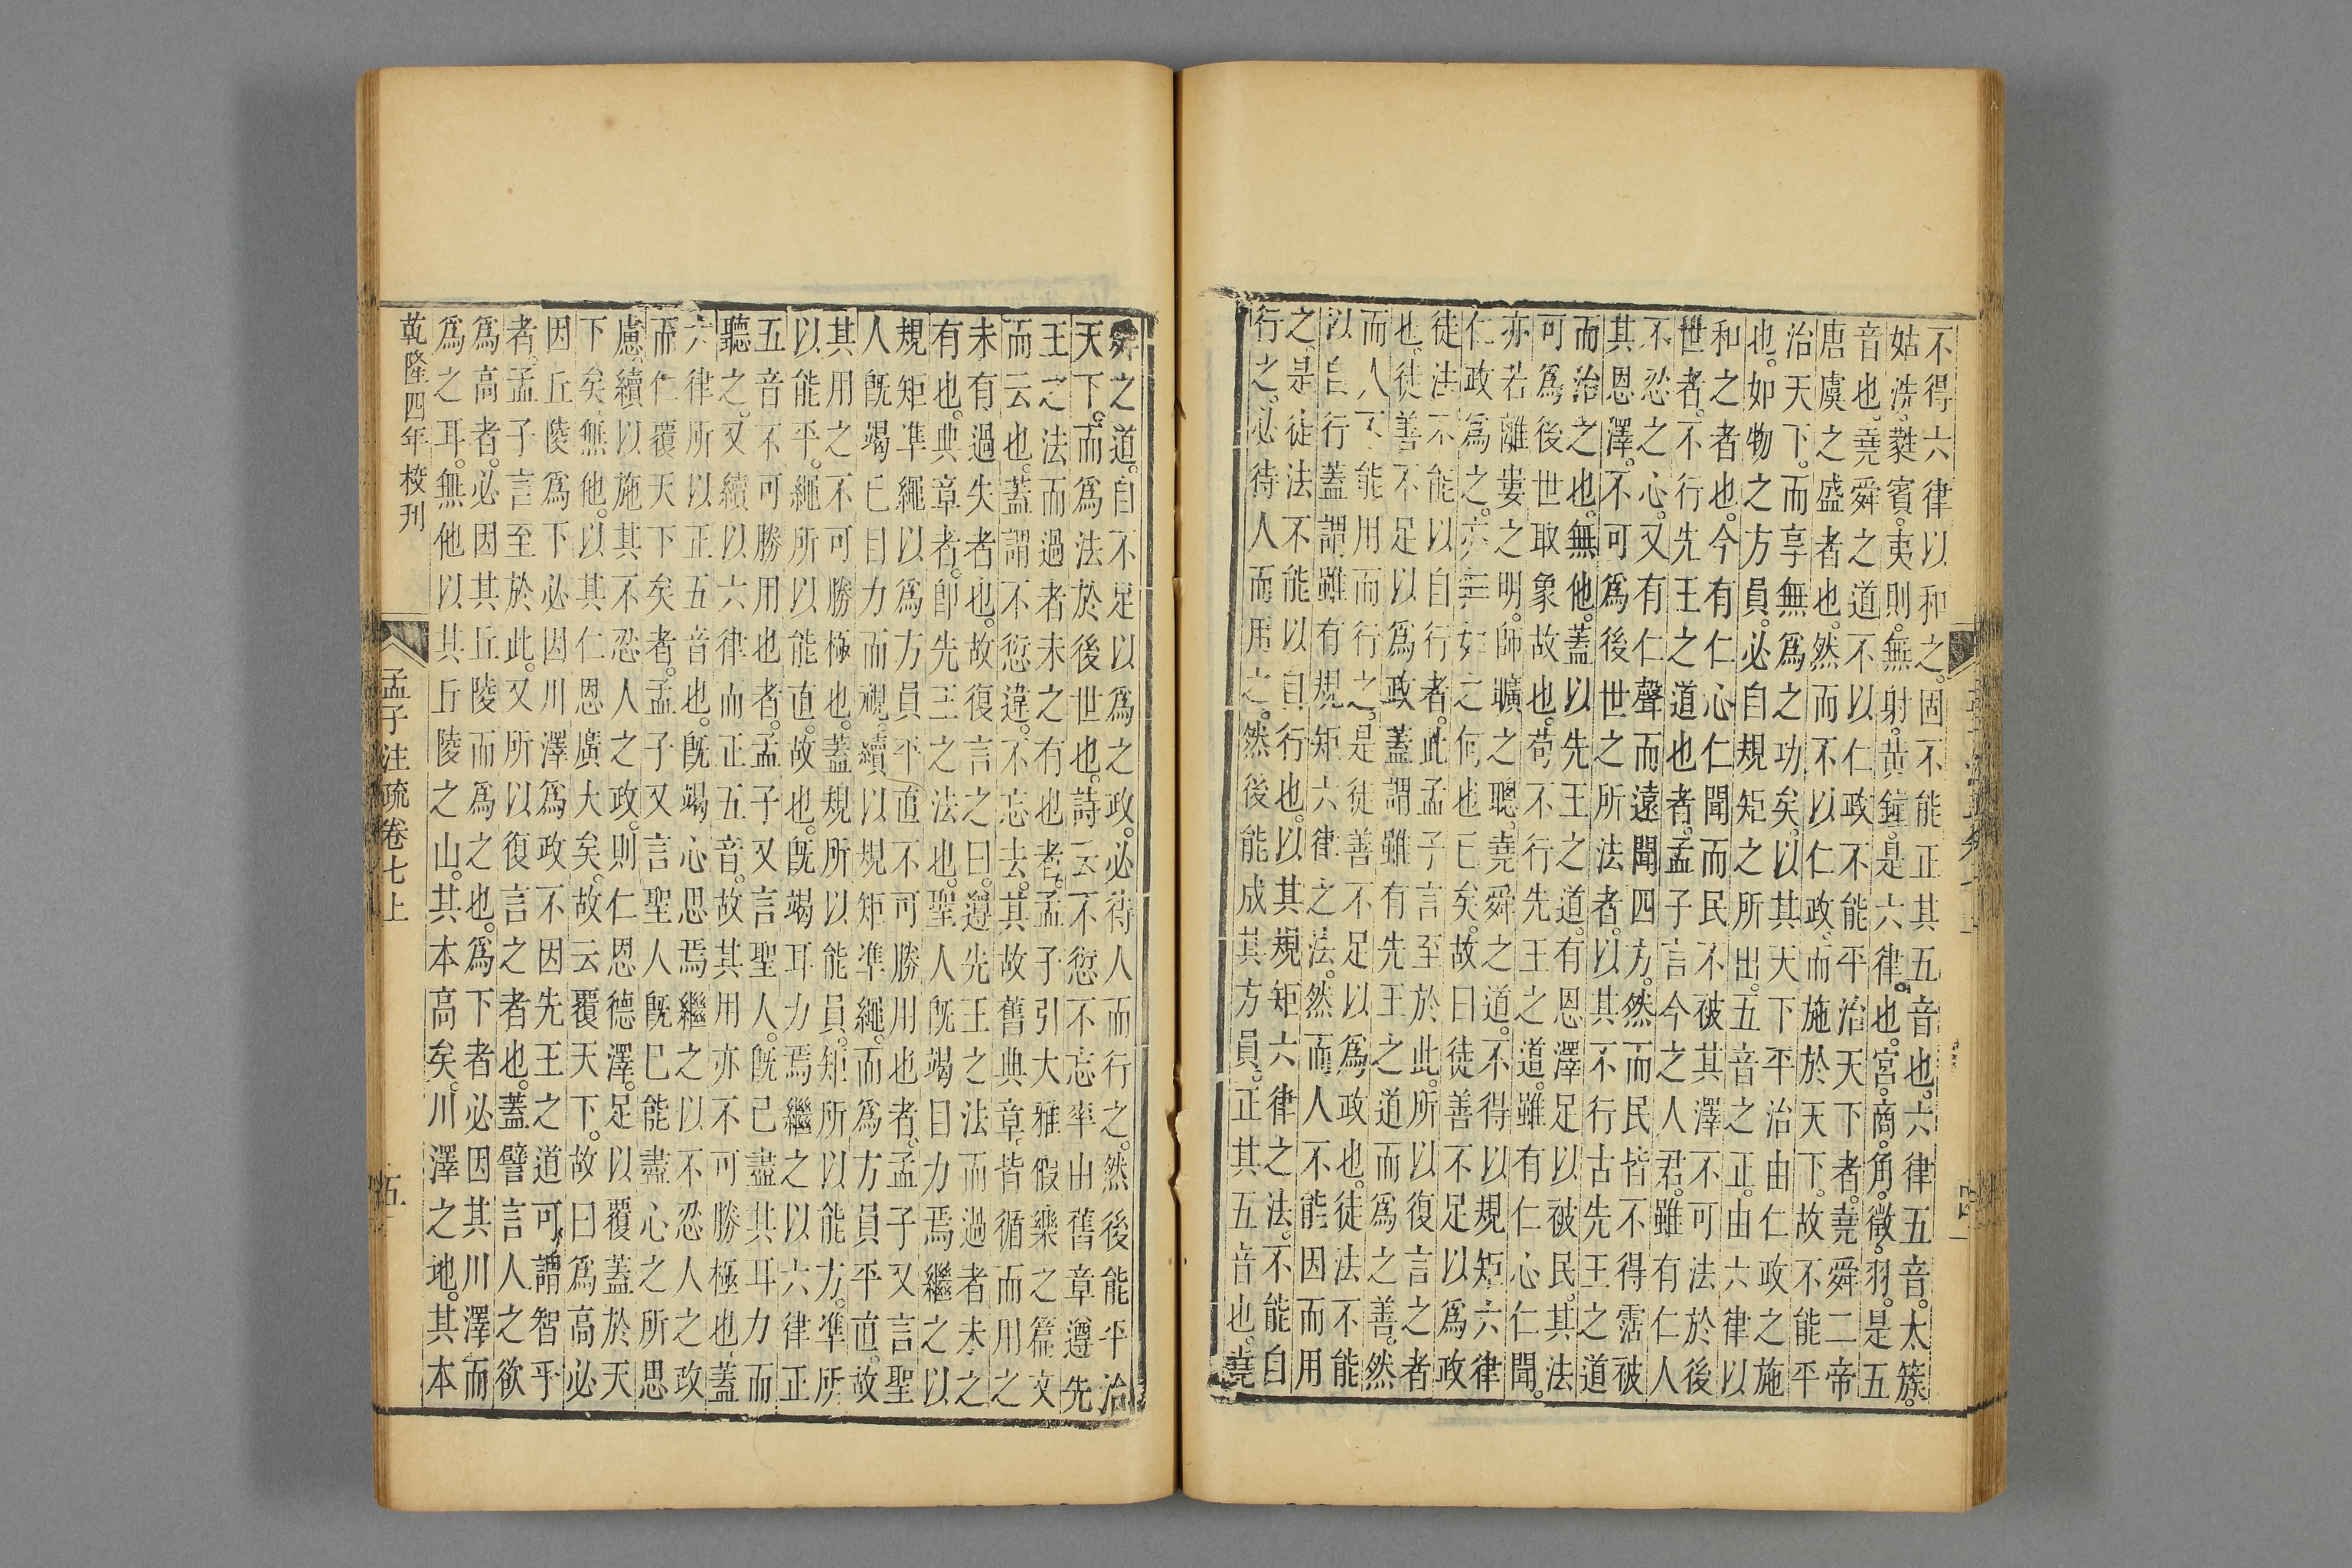 不得六律以和之。固不能正其五音也。六律五音。太簇。
姑洗。蕤賓。夷則。無射。黃鐘。是六律也。宮。商。角。徵。羽。是五
音也。堯舜之道不以仁政不能平治天下者。堯舜二帝
唐虞之盛者也。然而不以仁政。而施於天下。故不能平
治天下。而享無為之功矣。以其天下平治由仁政之施
也。如物之方員。必自規矩之所出。五音之正。由六律以
和之者也。今有仁心仁聞而民不被其澤不可法於後
世者。不行先王之道也者。孟子言今之人君。雖有仁人
不忍之心。又有仁聲而遠聞四方。然而民皆不得霑被
其恩澤。不可為後世之所法者。以其不行古先王之道
而治之也。無他。蓋以先王之道。有恩澤足以被民。其法
可為後世取象故也。苟不行先王之道。雖有仁心仁聞。
亦若離婁之明。師曠之聰。堯舜之道。不得以規矩六律
仁政為之。亦無如之何也已矣。故曰徒善不足以為政
徒法不能以自行者。此孟子言至於此。所以復言之者
也。徒善不足以為政蓋謂雖有先王之道而為之善。然
而人不能用而行之。是徒善不足以為政也。徒法不能
以自行蓋謂雖有規矩六律之法。然而人不能因而用
之。是徒法不能以自行也。以其規矩六律之法。不能自
行之。必待人而用之。然後能成其方員。正其五音也。堯
舜之道。自不足以為之政。必待人而行之。然後能平治
天下。而為法於後世也。詩云不愆不忘率由舊章遵先
王之法而過者未之有也者。孟子引大雅假樂之篇文
而云也。蓋謂不愆違。不忘去。其故舊典章。皆循而用之
未有過失者也。故復言之曰。遵先王之法而過者未之
有也。典章者。卽先王之法也。聖人旣竭目力焉繼之以
規矩準繩以為方員平直不可勝用也者。孟子又言聖
人旣竭已目力而視。續以規矩準繩。而為方員平直。故
其用之不可勝極也。蓋規所以能員。矩所以能方。準所
以能平。繩所以能直。故也。旣竭耳力焉繼之以六律正
五音不可勝用也者。孟子又言聖人。旣已盡其耳力而
聽之。又續以六律而正五音。故其用亦不可勝極也。蓋
六律所以正五音也。旣竭心思焉繼之以不忍人之政
而仁覆天下矣者。孟子又言聖人旣已能盡心之所思
慮。續以施其不忍人之政。則仁恩德澤。足以覆蓋於天
下矣。無他。以其仁恩廣大矣。故云覆天下。故曰為高必
因丘陵為下必因川澤為政不因先王之道可謂智乎
者。孟子言至於此。又所以復言之者也。蓋譬言人之欲
為高者。必因其丘陵而為之也。為下者必因其川澤而
為之耳。無他以其丘陵之山。其本高矣。川澤之地。其本
乾隆四年校刊
孟子注疏卷七上
五